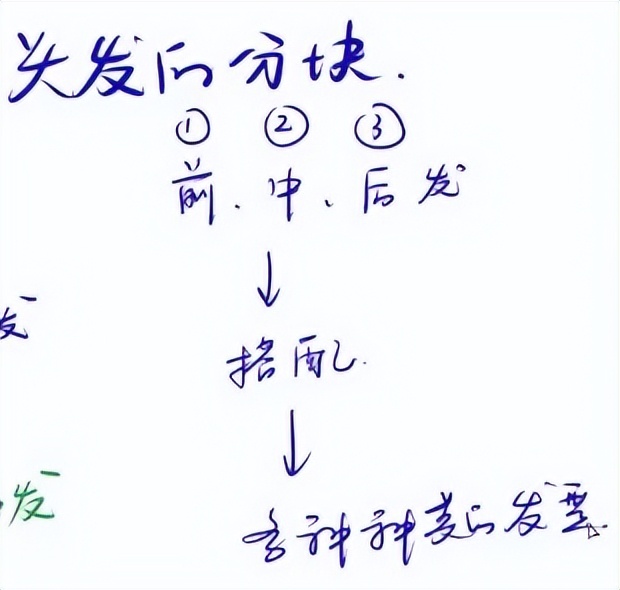 头发的分块.
① ② ③
前、中、后发
↓
发
搭配.
↓
发
各种种类的发型.